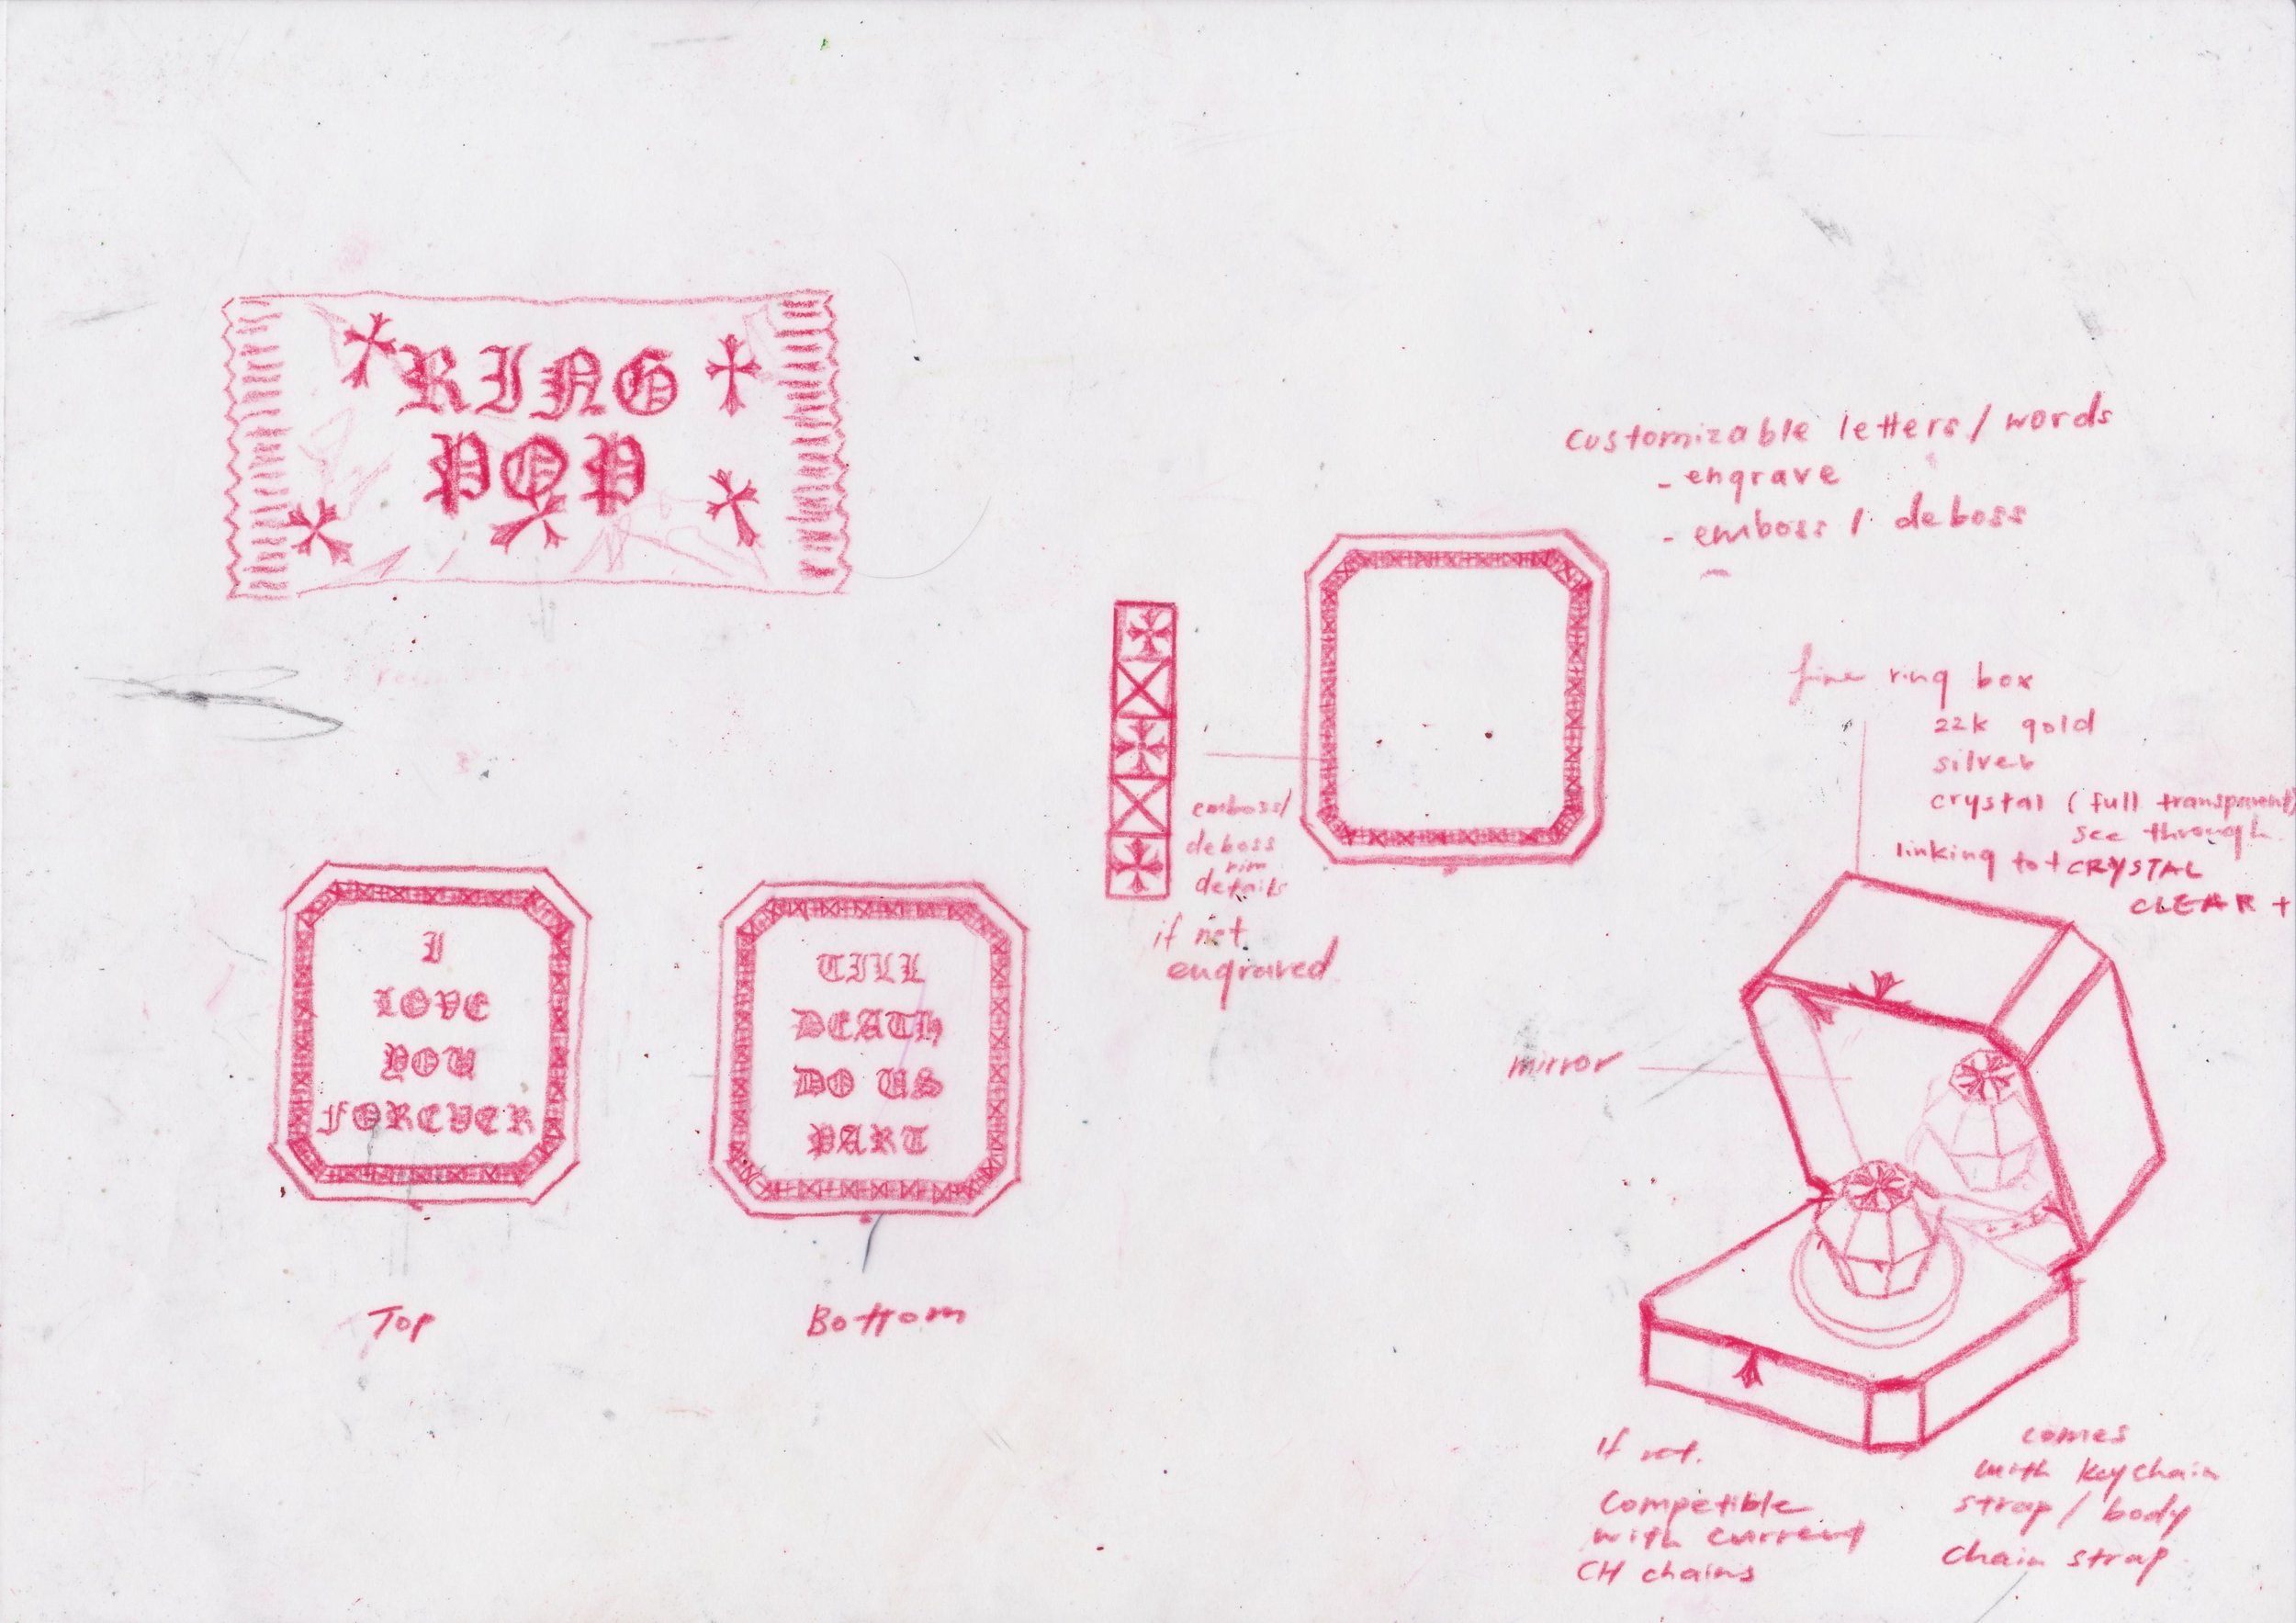 RING
POP
customizable letters / words
- engrave
- emboss / deboss
-
fine ring box
22k gold
silver
crystal (full transparent)
see through
linking to + CRYSTAL
CLEAR +
emboss/
deboss
rim
details
if not
engraved
I
LOVE
YOU
FOREVER
Top
TILL
DEATH
DO US
PART
Bottom
mirror
If not.
Competible
with current
CH chains
comes
with keychain
strap / body
chain strap